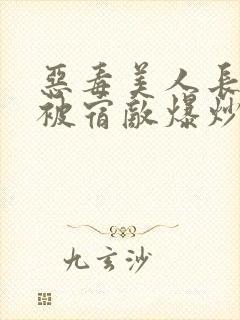 惡毒美人長
被宿敵爆炒
九玄沙